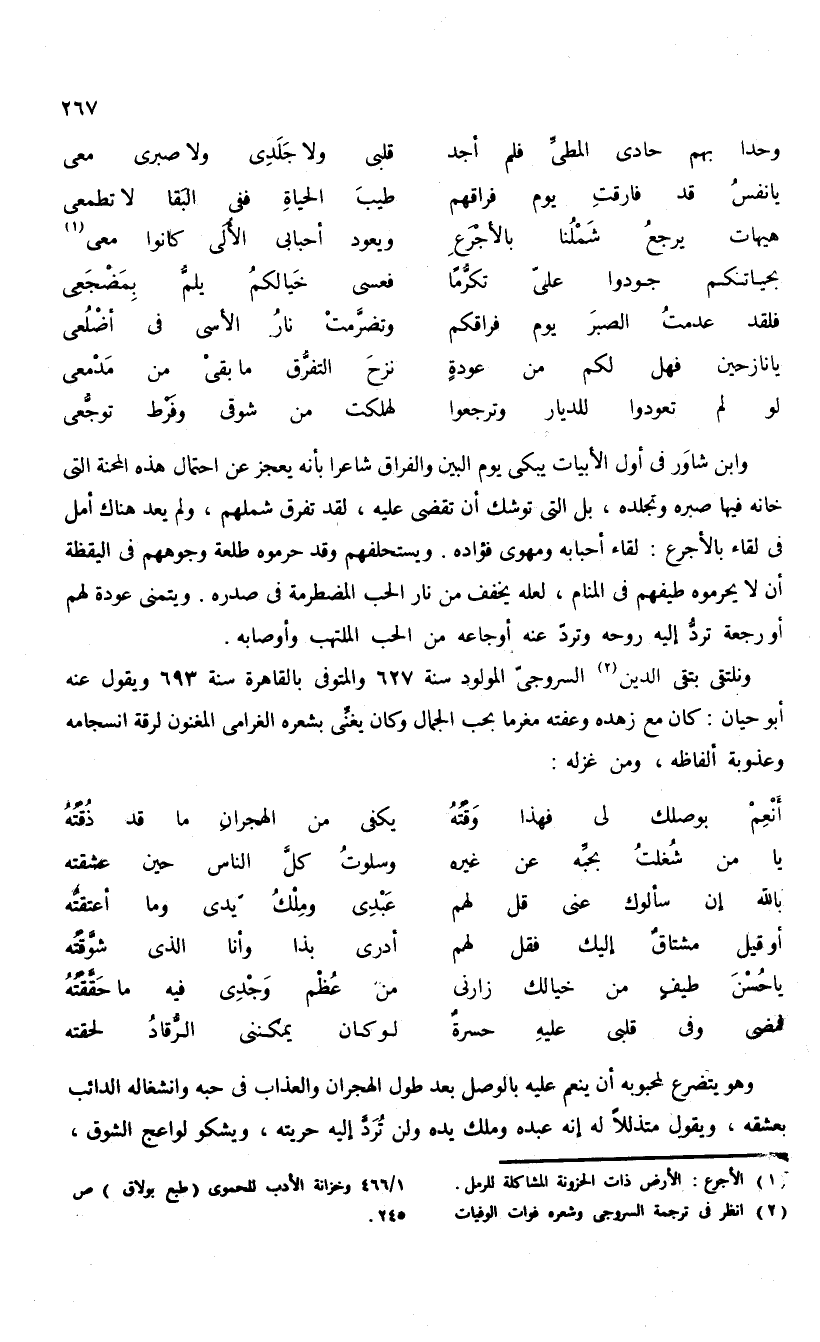 ٢٦٧
وحدا بهم حادى المطىِّ فلم أجد قلبى ولا جَلَدِى ولا صبرى معى
يانفسُ قد فارقتِ يوم فراقهم طيبَ الحياةِ ففى البَقا لا تطمعى
هيهات يرجعُ شَمْلُنا بالأجْرَعِ ويعود أحبابى الأُلَى كانوا معى(١)
بحياتكم جودوا علىّ تكرُّمًا فعسى خَيالكمُ يلمُّ بِمَضْجَعِى
فلقد عدمتُ الصبرَ يوم فراقكم وتضرَّمتْ نارُ الأسى فى أضْلُعى
يانازحين فهل لكم من عودةٍ نزحَ التفرُّق مابقىْ من مَدْمعى
لو لم تعودوا للديار وترجعوا لهلكت من شوقى وفَرْط توجُّعى
وابن شاوَر فى أول الأبيات يبكى يوم البين والفراق شاعرا بأنه يعجز عن احتمال هذه المحنة التى
خانه فيها صبره وتجلده ، بل التى توشك أن تقضى عليه ، لقد تفرق شملهم ، ولم يعد هناك أمل
فى لقاء بالأجرع : لقاء أحبابه ومهوى فؤاده . ويستحلفهم وقد حرموه طلعة وجوههم فى اليقظة
أن لا يحرموه طيفهم فى المنام ، لعله يخفف من نار الحب المضطرمة فى صدره . ويتمنى عودة لهم
أو رجعة تردُّ إليه روحه وتردّ عنه أوجاعه من الحب الملتهب وأوصابه .
ونلتقى بتقى الدين(٢) السروجىّ المولود سنة ٦٢٧ والمتوفى بالقاهرة سنة ٦٩٣ ويقول عنه
أبو حيان : كان مع زهده وعفته مغرما بحب الجمال وكان يغنَّى بشعره الغرامى المغنون لرقة انسجامه
وعذوبة ألفاظه ، ومن غزله :
أَنْعِمْ بوصلك لى فهذا وَقْتُهُ يكفى من الهجرانِ ما قد ذُقْتُهُ
يا من شُغلتُ بحبِّه عن غيره وسلوتُ كلَّ الناس حين عشقته
بالله إن سألوك عنى قل لهم عَبْدِى ومِلْكُ يدى وما أعتقتُه
أو قيل مشتاقٌ إليك فقل لهم أدرى بذا وأنا الذى شوَّقْتُه
ياحُسْنَ طيفٍ من خيالك زارنى منَ عُظْم وَجْدِى فيه ماحَقَّقْتُهُ
فمضى وفى قلبى عليهِ حسرةٌ لوكان يمكننى الرُّقادُ لحقته
وهو يتضرع لمحبوبه أن ينعم عليه بالوصل بعد طول الهجران والعذاب فى حبه وانشغاله الدائب
بعشقه ، ويقول متذللاً له إنه عبده وملك يده ولن تُرَدَّ إليه حريته ، ويشكو لواعج الشوق ،
(١) الأجرع : الأرض ذات الحزونة المشاكلة للرمل .
(٢) انظر فى ترجمة السروجى وشعره فوات الوفيات
٤٦٦/١ وخزانة الأدب للحموى (طبع بولاق ) ص
٢٤٥ .